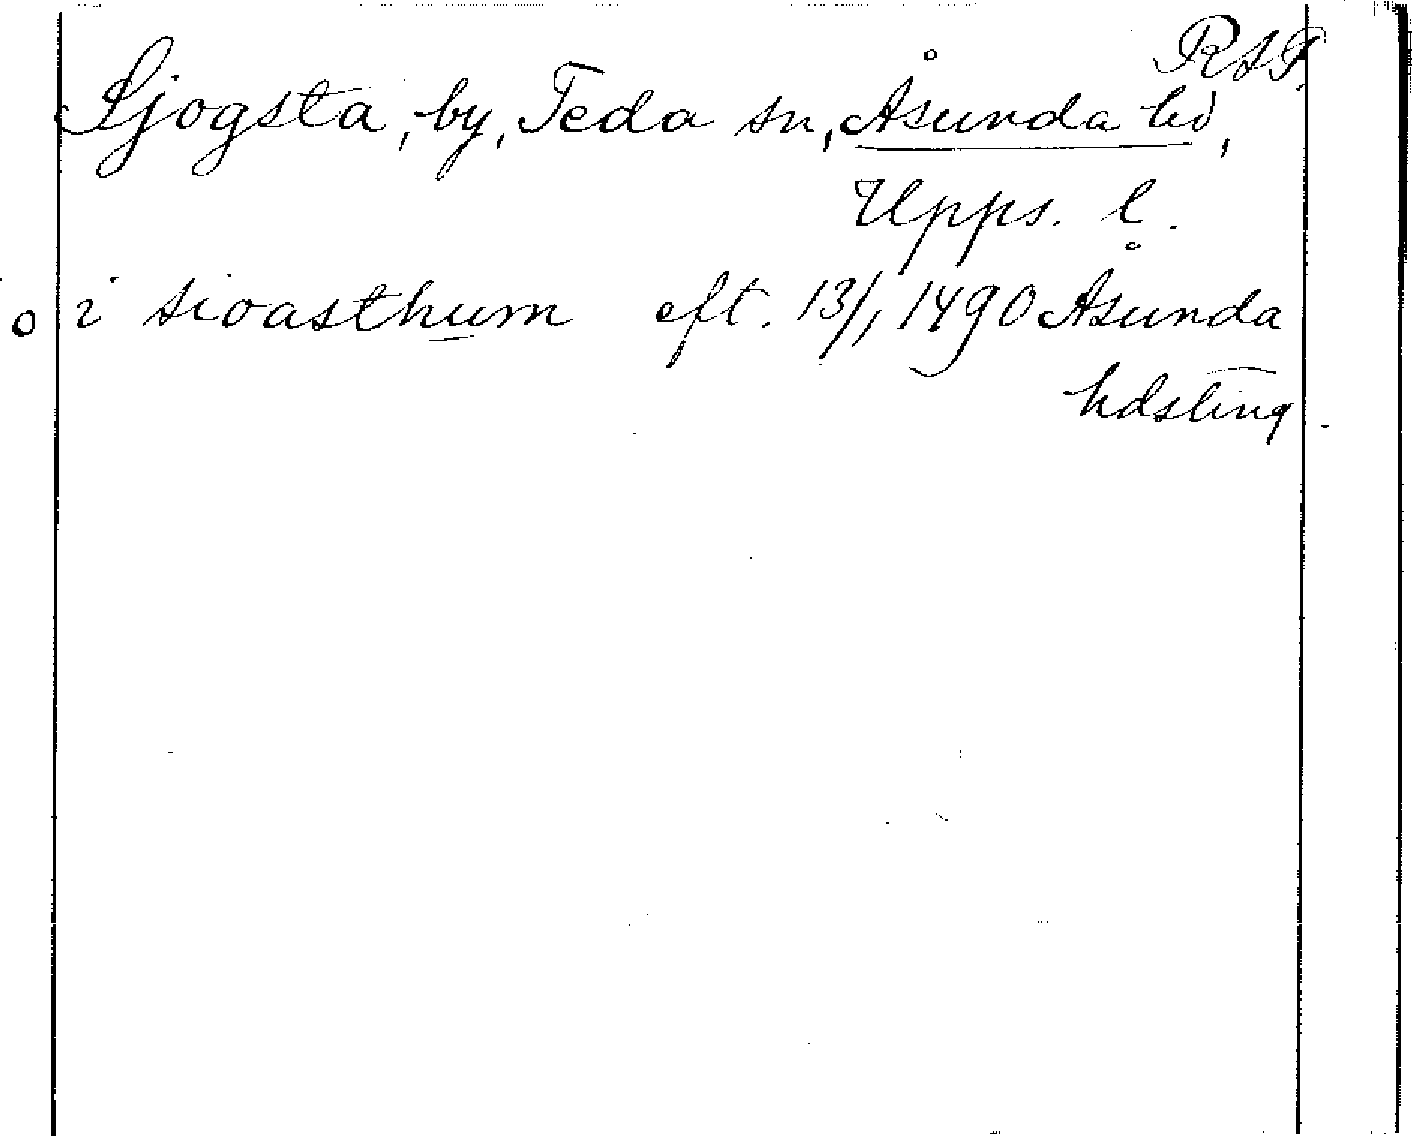 RAP.
Sjogsta, by, Teda sn, Åsunda hd,
Upps. l.
o i sioasthum eft. 13/1 1490 Åsunda
hdsting